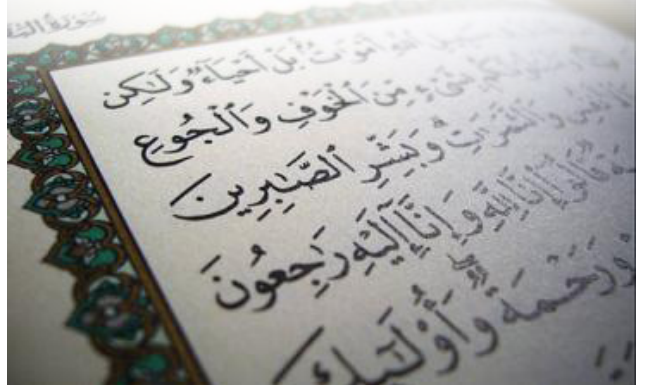 سُورَةُ
أَمْوَٰتٌۢ بَلْ أَحْيَآءٌ وَلَٰكِن
بِشَىْءٍ مِّنَ ٱلْخَوْفِ وَٱلْجُوعِ
وَٱلْأَنفُسِ وَٱلثَّمَرَٰتِ ۗ وَبَشِّرِ ٱلصَّٰبِرِينَ
قَالُوٓا۟ إِنَّا لِلَّهِ وَإِنَّآ إِلَيْهِ رَٰجِعُونَ
وَرَحْمَةٌ ۖ وَأُو۟لَٰٓئِكَ